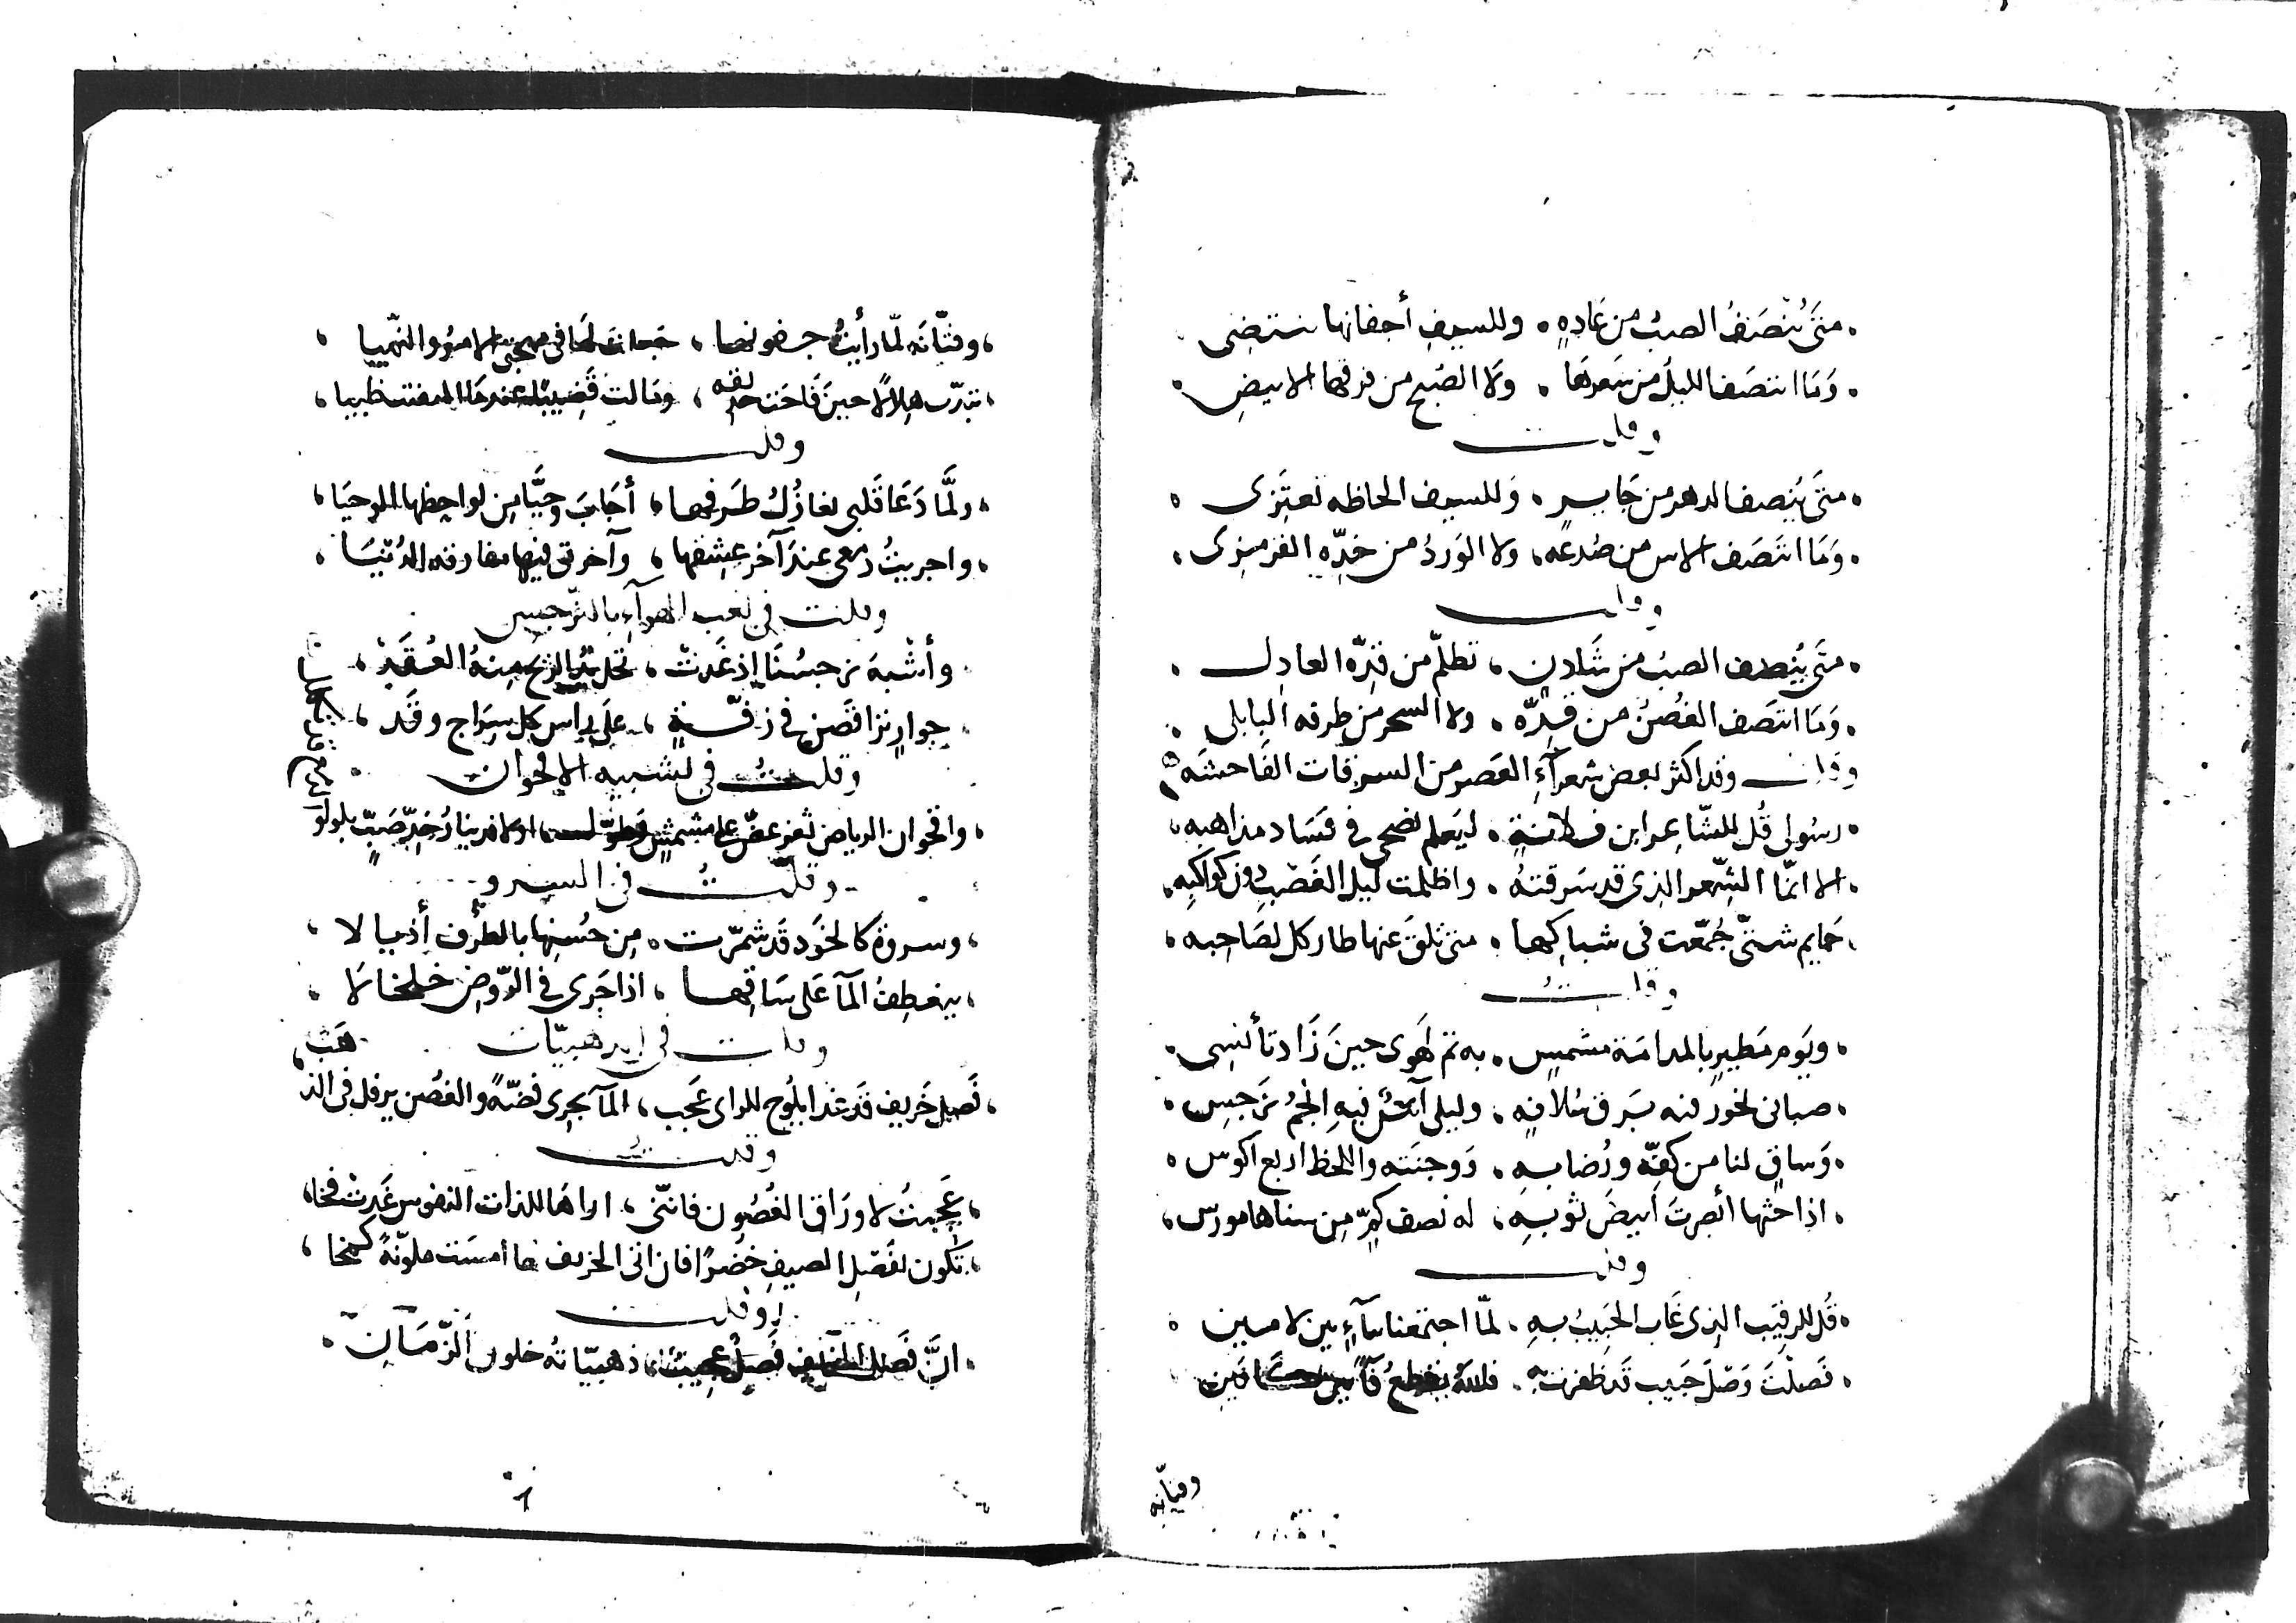 متَى يُنْصَفُ الصبُ من غادهٍ وللسيف أجفانها تنتضِى
وَمَا انتصَفَ الليلُ من شَعرهَا ولَا الصُبح من فرقها الابيضِ
وقلت
متَى يُنصف الدهر من جَابرٍ وَللسيف الحاظه تعتَزى
وَمَا انتَصَف الاس من صُدغه ولا الوَردُ من خدِّه القرمزى
وقلت
متَى يُنصف الصبُ من شَادنٍ تظلّم من قدِّه العادل
وَمَا انتَصَف الغُصنُ من قدِّه ولا السحر من طرفه البابلى
وقلت وقد اكثر بعض شعرآءِ العَصر من السرقات الفَاحشَه
رسُولى قُل للشّاعر ابن فلانةٍ ليَعلم نصحى فى فسَاد مذاهبه
الا انمّا الشِّعر الذى قد سَرقتهُ واظلمت ليل الغَصْب دون كواكبِه
حَمايم شتّى جُمّعت فى شباكها متى تلقَ عنها طار كل لصَاحبه
وقلتُ
ويَوم مَطيرٍ بالمدامَة مشمسٍ به تم لهَوى حينَ زَاد تأنسِى
صبانى لخور منه بَرق سُلافهِ وليلى فيهِ انجمُ نَرجسِ
وَساقٍ لنا من كفِّه ورُضابهِ وَوجنَتهِ واللحظ اربع اكوس
اذا حثها أبصرتَ أبيضَ ثوبهِ له نصف كمٍّ مِن سناها مورس
وقلت
قُل للرقيَب الذى غَاب الحَبِيبُ بهِ لمّا اجتمعنا مسآءً بين لامين
فَصلْتَ وَصْلَ حَبيب قَد ظفرت به فاللهُ يقطعُ
وفتّانه
وفتّانَه لمّا رأيتُ جفونها جَعلت لهَا فى مهجتى الامرُ والنّهيا
تبدّت هِلالًا حينَ فَاحَت حديقه ومَالت قَضيبًا عندمَا التفتت ظَبيا
وقلت
ولَّما دَعَا قَلبى تغازُلُ طَرفها أجَابَ وحيَّا من لواحظها الوحيَا
واجريتُ دَمعى عندَ آخر عِشقها وآخرتى فيها مفارقه الدُنيَا
وقلت فى لعب الهوآءِ بالنّرجس
وأشْبهَ نرجسُنَا إذ غَدتْ تحلّ يدُ الريح منهُ العُقَدْ
جوارٍ تراقَصنَ فى زفّةٍ عَلَى راس كل سِرَاج وقَد
وقلتُ فى تشبيه الاقحوان
واقحوان الرياض ثغر عضّ على مشمش اولا فدينا رُخدّ صَبّ بلولو
وقلتُ فى السرو
وسروةٍ كالخوَد قَد شمّرت من حُسنها بالطُرف أذيالا
ينعطِفُ المآ عَلى سَاقها اذا جَرى فى الرّوض خلخالا
وقلت فى الذهبيّات
فَصل خَريف قَد غدا يلوح للراى عَجب المآ يجرى فضّةً والغصُن يرفل فى الذهَب
وقلتُ
عَجبتُ لاورَاق الغُصُون فانّنى اراهَا للذات النفوس غَدتْ فخا
تكون لفَصْلِ الصيف خُضرًا فان اتى الخريف لها أمسَت ملوّنةً كمخا
وقلت
انَّ فَصل الخريف فَصلٌ عجيبٌ ذهبيّاتهُ حلول الزّمَان